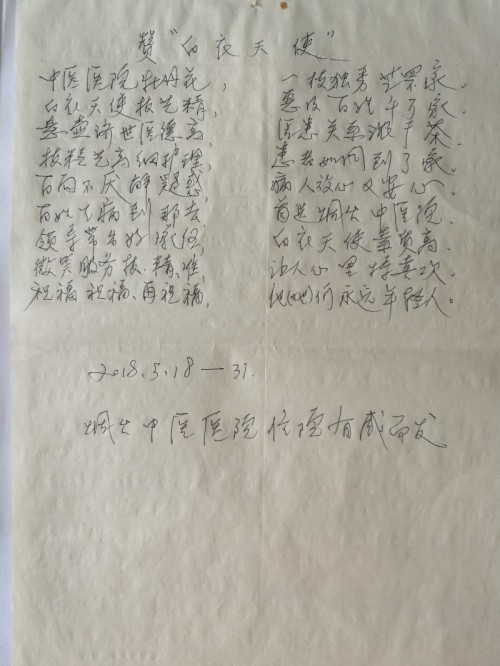 赞“白衣天使”
中医医院牡丹花， 一枝独秀登罘家。
白衣天使技艺精， 惠及百姓千万家。
悬壶济世医德高， 医患关系浓于茶。
技精艺高细护理， 患者如同到了家。
百问不厌解疑惑， 病人放心又安心。
百姓生病到那去 首选烟台中医院。
领导带出好队伍 白衣天使素质高。
微笑服务技精准 让人心里特喜欢。
祝福祝福、再祝福， 他(她)们永远年轻人。
2018.5.18—31.
烟台中医医院住院有感而发